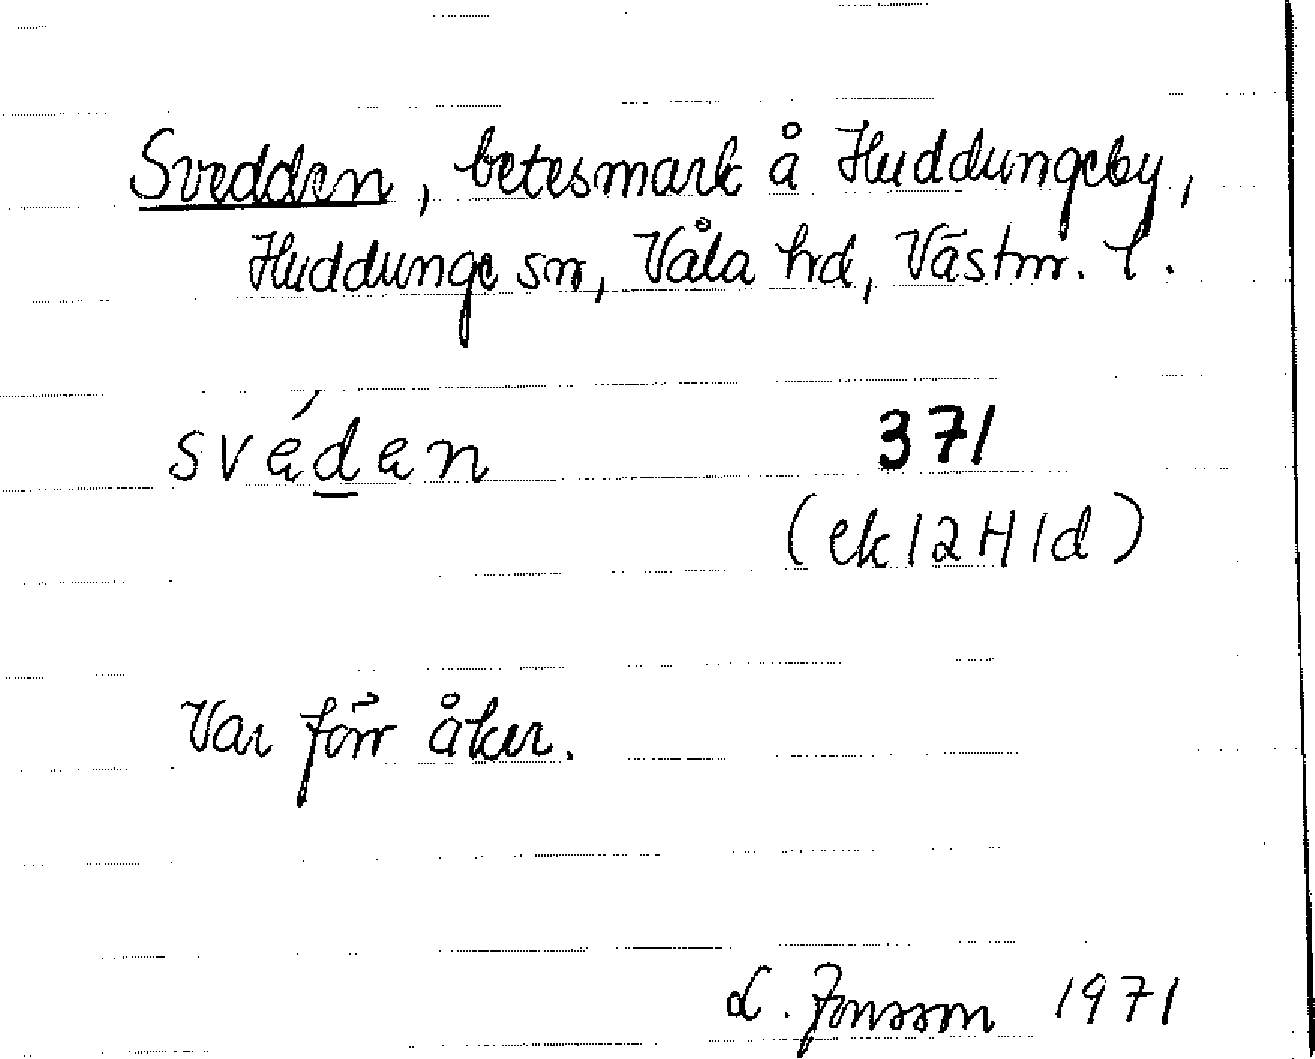 Svedden, betesmark å Huddungeby,
Huddunge sn, Våla hd, Västm. l.
svéden 371
(ek 12H1d)
Var förr åker.
L. Jonsson 1971